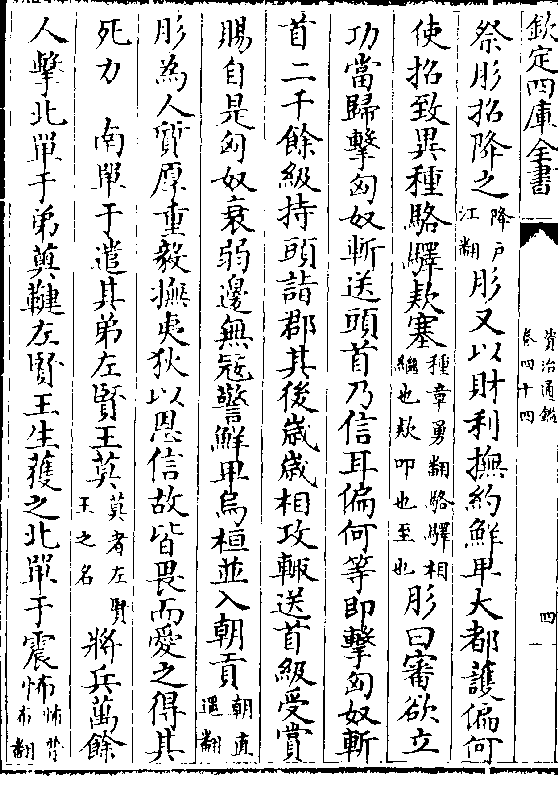 欽定四庫全書
資治通鑑
卷四十四
四
祭肜招降之降戶江翻肜又以財利撫約鮮卑大都護偏何
使招致異種駱驛款塞種章勇翻駱驛相繼也款叩也至也肜曰審欲立
功當歸擊匈奴斬送頭首乃信耳偏何等即擊匈奴斬
首二千餘級持頭詣郡其後歲歲相攻輒送首級受賞
賜自是匈奴衰弱邊無寇警鮮卑烏桓並入朝貢朝直遥翻
肜為人質厚重毅撫夷狄以恩信故皆畏而愛之得其
死力　南單于遣其弟左賢王莫莫者左賢王之名將兵萬餘
人擊北單于弟薁鞬左賢王生獲之北單于震怖怖普布翻